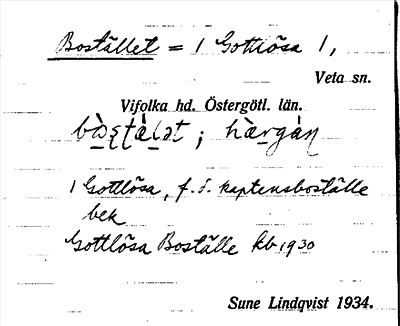 Bostället = 1 Gottlösa 1,
Veta sn.
Vifolka hd. Östergötl. län.
1 Gottlösa, f. d. kaptensboställe
bek
Gottlösa Boställe kb 1930
Sune Lindqvist 1934.